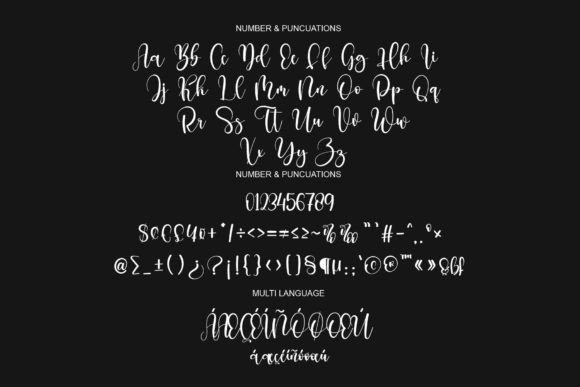 NUMBER & PUNCUATIONS
Aa Bb Cc Dd Ee Ff Gg Hh Ii
Jj Kk Ll Mm Nn Oo Pp Qq
Rr Ss Tt Uu Vv Ww
Xx Yy Zz
NUMBER & PUNCUATIONS
0123456789
+ * / ÷ < > = ≠ ≤ ≥ ~ % ‰ # - ^ × 
@ ∑ _ ± ( ) ¿ ? ¡ ! { } ‹ › [ ] § ¶ µ : ; © ® ™ « »
MULTI LANGUAGE